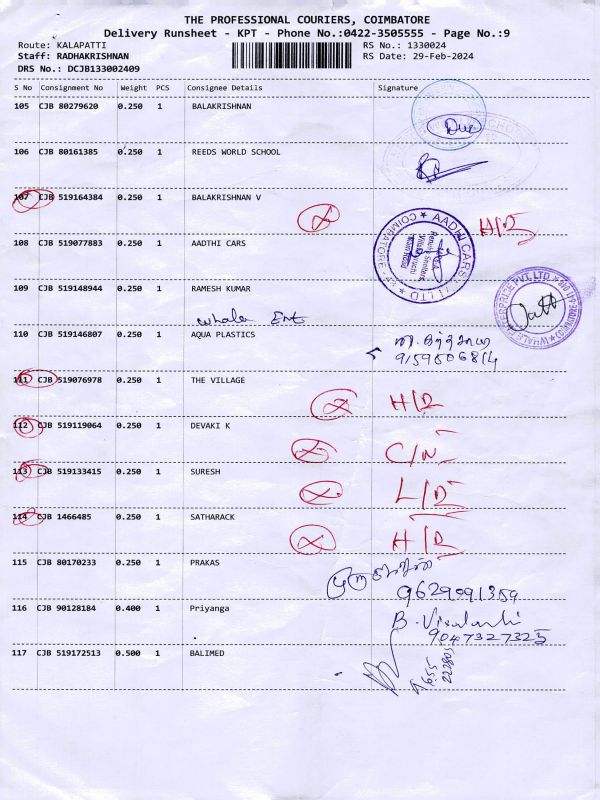 THE PROFESSIONAL COURIERS, COIMBATORE
Delivery Runsheet - KPT - Phone No.:0422-3505555 - Page No.:9
Route: KALAPATTI
RS No.: 1330024
Staff: RADHAKRISHNAN
RS Date: 29-Feb-2024
DRS No.: DCJB133002409
S No Consignment No Weight PCS Consignee Details Signature
105 CJB 80279620 0.250 1 BALAKRISHNAN
106 CJB 80161385 0.250 1 REEDS WORLD SCHOOL
107 CJB 519164384 0.250 1 BALAKRISHNAN V H/D
108 CJB 519077883 0.250 1 AADTHI CARS
COIMBATORE AADHI CARS
109 CJB 519148944 0.250 1 RAMESH KUMAR
Whale Ent
110 CJB 519146807 0.250 1 AQUA PLASTICS
111 CJB 519076978 0.250 1 THE VILLAGE H/D
112 CJB 519119064 0.250 1 DEVAKI K C/N
113 CJB 519133415 0.250 1 SURESH L/D
114 CJB 1466485 0.250 1 SATHARACK H/D
115 CJB 80170233 0.250 1 PRAKAS
9629091359
116 CJB 90128184 0.400 1 Priyanga
9047327325
117 CJB 519172513 0.500 1 BALIMED